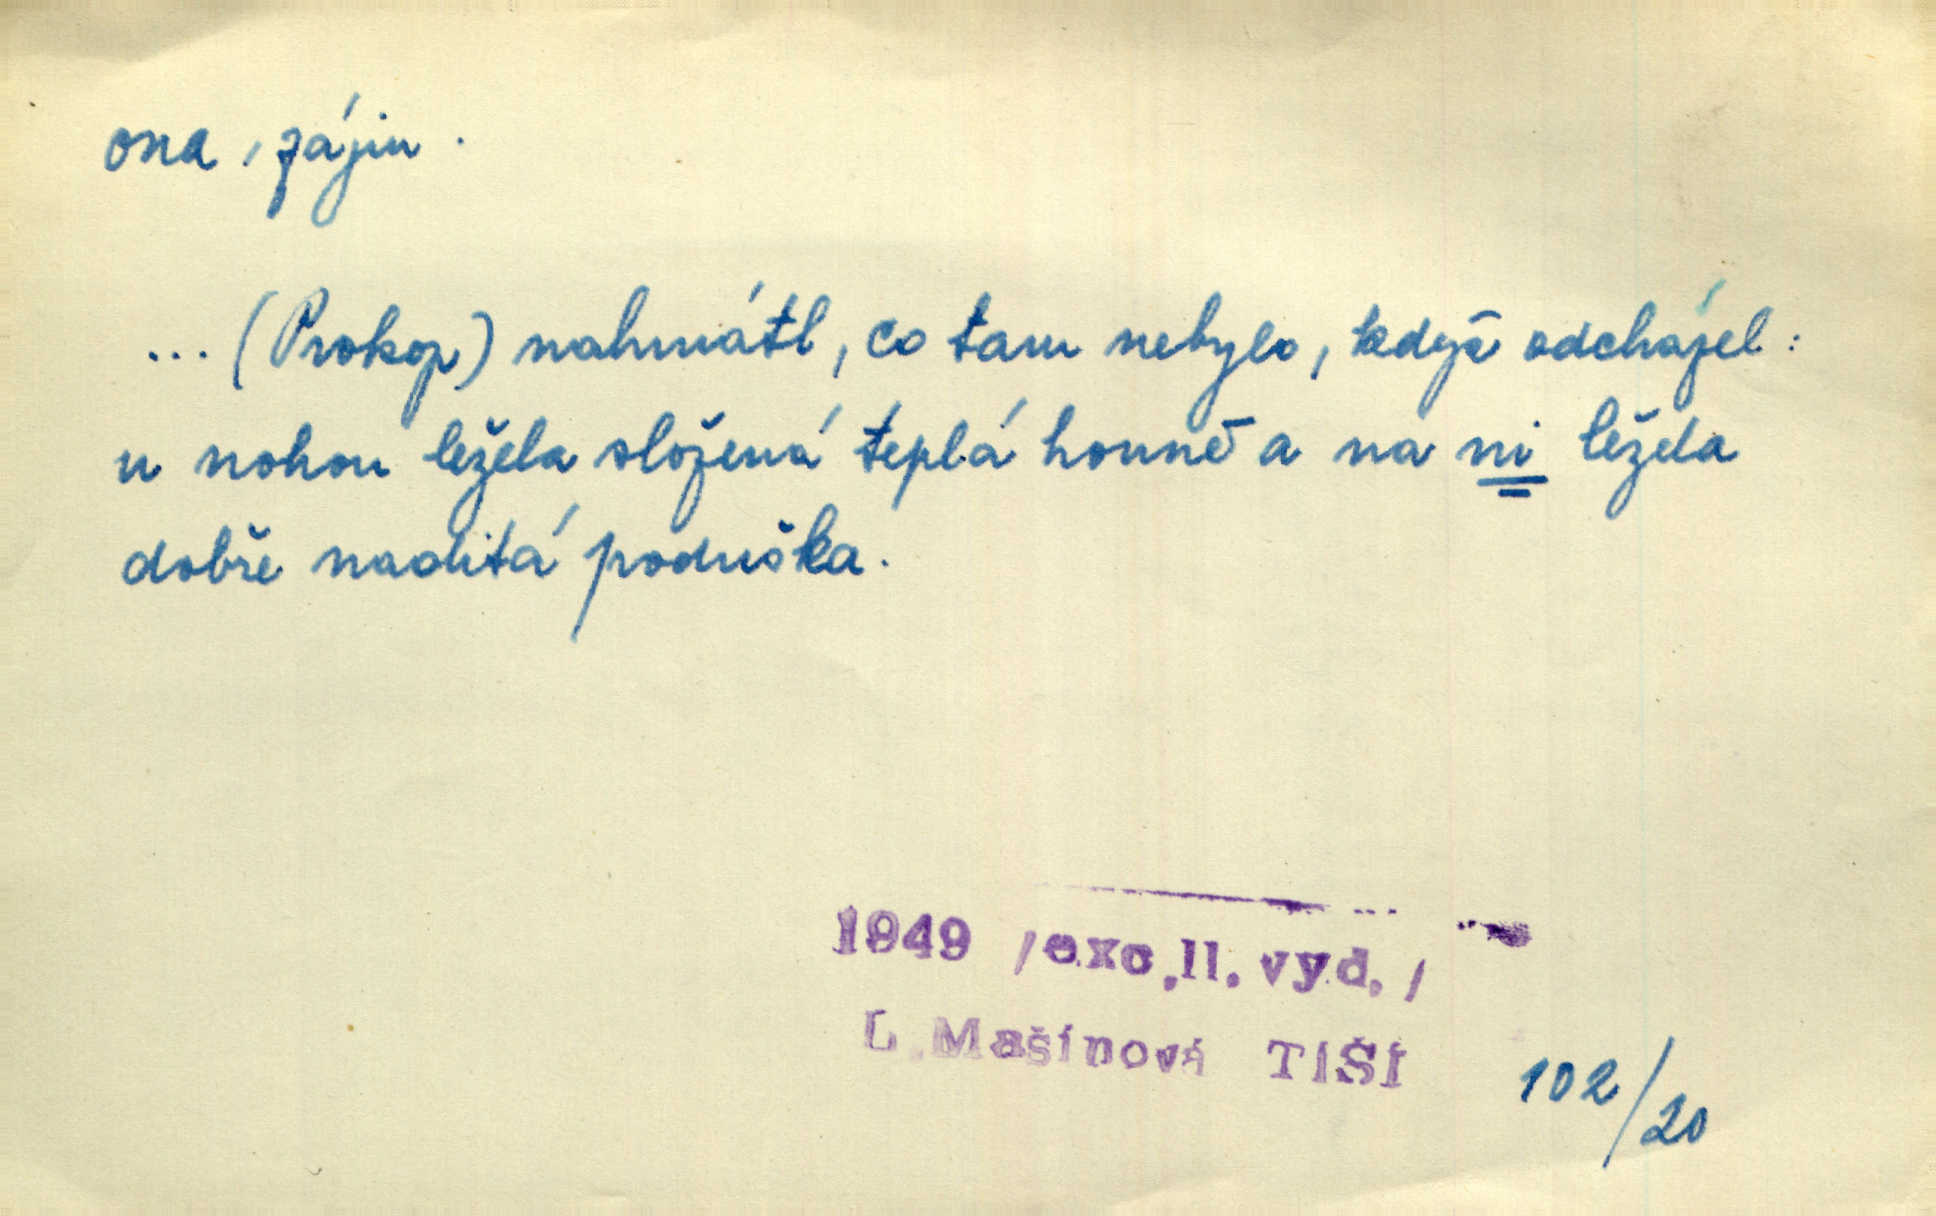 ona, zájm.
... (Prokop) nahmátl, co tam nebylo, když odcházel:
u nohou ležela složená teplá houně a na ni ležela
dobře naditá poduška.
1949 /exc.II. vyd./
L.Mašínová TIŠÍ
102/20